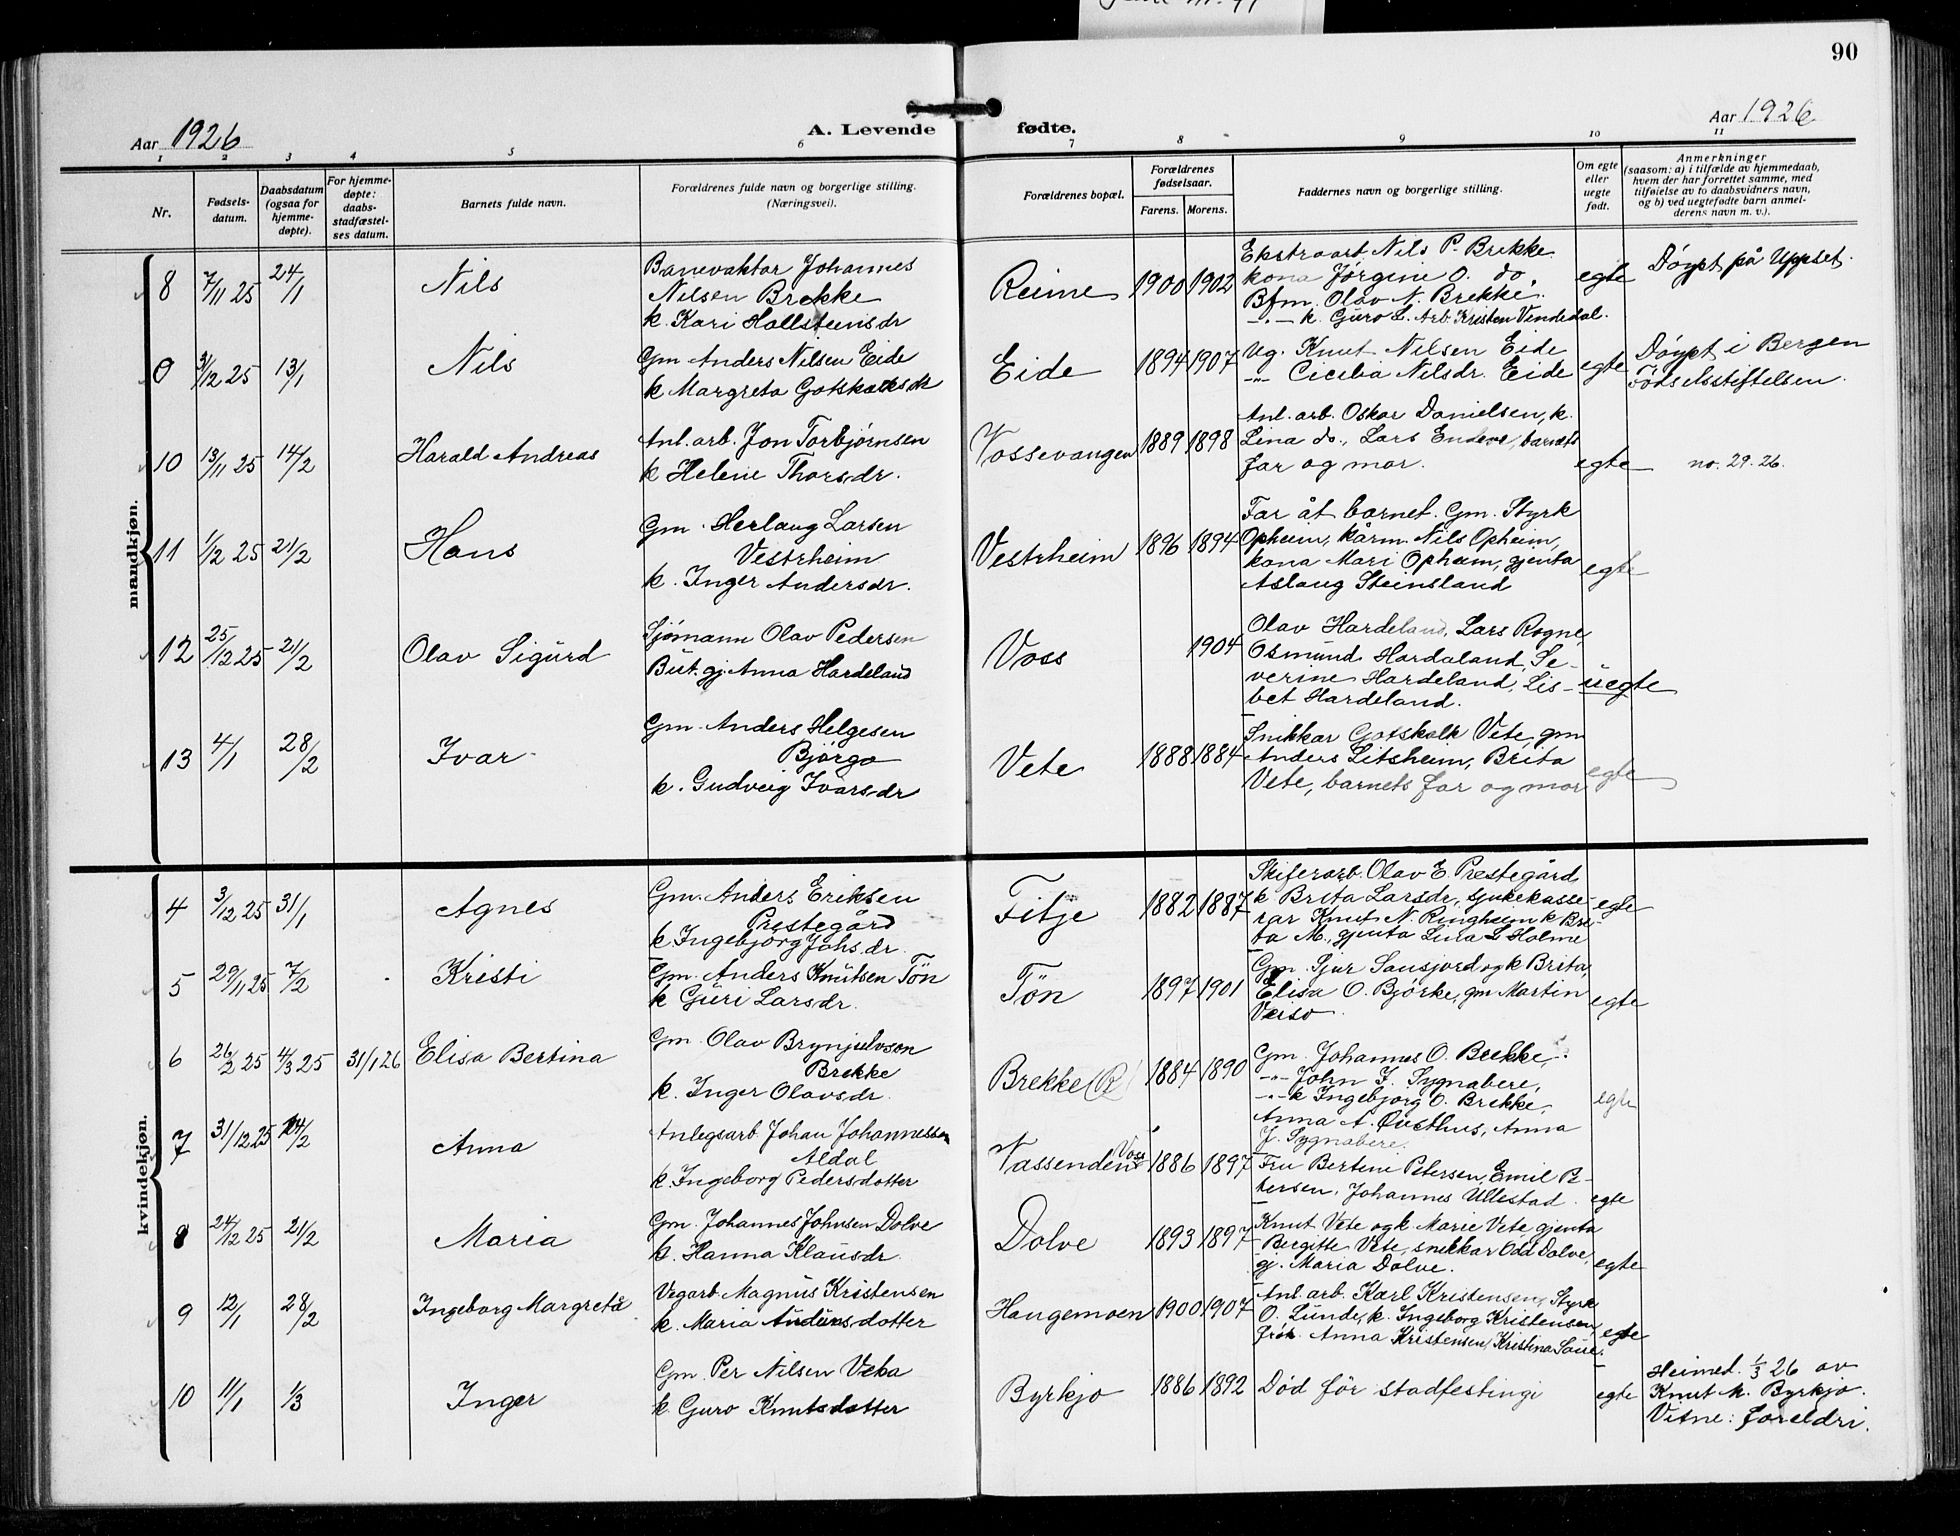 90
Aar 1926
A. Levende fødte.
Aar 1926
1 2 3 4 5 6 7 8 9 10 11
Nr.
Fødsels-
datum.
Daabsdatum
(ogsaa for
hjemme-
døpte).
For hjemme-
døpte:
daabs-
stadfæstel-
ses datum.
Barnets fulde navn.
Forældrenes fulde navn og borgerlige stilling.
(Næringsvei).
Forældrenes bopæl.
Forældrenes
fødselsaar.
Farens. Morens.
Faddernes navn og borgerlige stilling.
Om egte
eller
uegte
født.
Anmerkninger
(saasom: a) i tilfælde av hjemmedaab,
hvem der har forrettet samme, med
tilføielse av to daabsvidners navn,
og b) ved uegtefødte barn anmel-
derens navn m. v.).
mandkjøn.
8 7/11 25 24/1 Nils
Banevaktar Johannes
Nilsen Brekke
k. Kari Hallsteinsdr
Reime 1900 1902
Ekstraarb. Nils P. Brekke
kona Jørgine O. do,
Bfm. Olav N. Brekke,
-"- k. Guro L. Arb. Kristen Vendedal.
egte
Døypt på Uppset.
9 3/12 25 13/1 Nils
Gm Anders Nilsen Eide
k Margreta Gotskalksdr
Eide 1894 1907
Ug. Knut Nilsen Eide
-"- Cicilia Nilsdr. Eide
egte
Døypt i Bergen
Fødselsstiftelsen.
10 13/11 25 14/2 Harald Andreas
Anl. arb. Jon Torbjørnsen
k Helene Thorsdr.
Vossevangen 1889 1898
Anl. arb. Oskar Danielsen, k.
Lina do., Lars Endeve, barnets
far og mor.
egte
no. 29. 26.
11 1/2 25 21/2 Hans
Gm. Herlaug Larsen
Vestrheim
k. Inger Andersdr.
Vestrheim 1896 1894
Far åt barnet. Gm. Styrk
Opheim, kårm. Nils Opheim,
kona Mari Opheim, gjenta
Aslaug Steinsland
egte
12 25/12 25 21/2 Olav Sigurd
Sjømann Olav Pedersen
But. gj. Anna Hardeland
Voss 1904
Olav Hardeland, Lars Rogne,
Osmund Hardaland, Se-
verine Hardeland, Lis-
bet Hardeland.
uegte
13 4/1 28/2 Ivar
Gm. Anders Helgesen
Bjørgo
k. Gudveig Ivarsdr
Vete 1888 1884
Snikkar Gotskalk Vete, gm
Anders Litsheim, Brita
Vete, barnets far og mor
egte
kvindekjøn.
4 3/12 25 31/1 Agnes
Gm. Anders Eriksen
Prestegård
k. Ingebjørg Johs dr.
Fitje 1882 1887
Skiferarb. Olav E. Prestegård,
k Brita Larsdr, sjukekasse-
rar Knut N. Ringheim k Bri-
ta M., gjenta Lina L. Holme
egte
5 29/11 25 7/2 Kristi
Gm. Anders Knutsen Tøn
k Guri Larsdr.
Tøn 1897 1901
Gm. Sjur Sausjord og k Brita,
Elisa O. Bjørke, gm Martin
Verso.
egte
6 26/2 25 4/3 25 31/1 26 Elisa Bertina
Gm. Olav Brynjulvson
Brekke
k. Inger Olavsdr.
Brekke (R) 1884 1890
Gm. Johannes O. Brekke,
-"- John J. Sygnabere,
-"- k Ingebjørg O. Brekke,
Anna A. Øvsthus, Anna
J. Sygnabere.
egte
7 31/12 25 14/2 Anna
Anlegsarb. Johan Johannessen
Aldal
k. Ingeborg Pedersdotter
Vassenden Voss 1886 1897
Fru Bertine Petersen, Emil Pe-
tersen, Johannes Ullestad.
egte
8 24/12 25 21/2 Maria
Gm. Johannes Johnsen Dolve
k. Hanna Klausdr.
Dolve 1893 1897
Knut Vete og k Marie Vete, gjenta
Bergitte Vete, snikkar Odd Dolve,
gj. Maria Dolve.
egte
9 12/1 28/2 Ingeborg Margreta
Vegarb Magnus Kristensen
k. Maria Andersdotter
Haugemoen 1900 1907
Anl. arb. Karl Kristensen, Styrk
O. Lunde, k. Ingeborg Kristensen,
frøk. Anna Kristensen, Kristina Saue.
egte
10 11/1 1/3 Inger
Gm. Per Nilsen Veka
k. Guro Knutsdotter
Byrkjo 1886 1892
Død før stadfestingi
egte
Heimed. 1/3 26 av
Knut M. Byrkjo.
Vitne: foreldri.